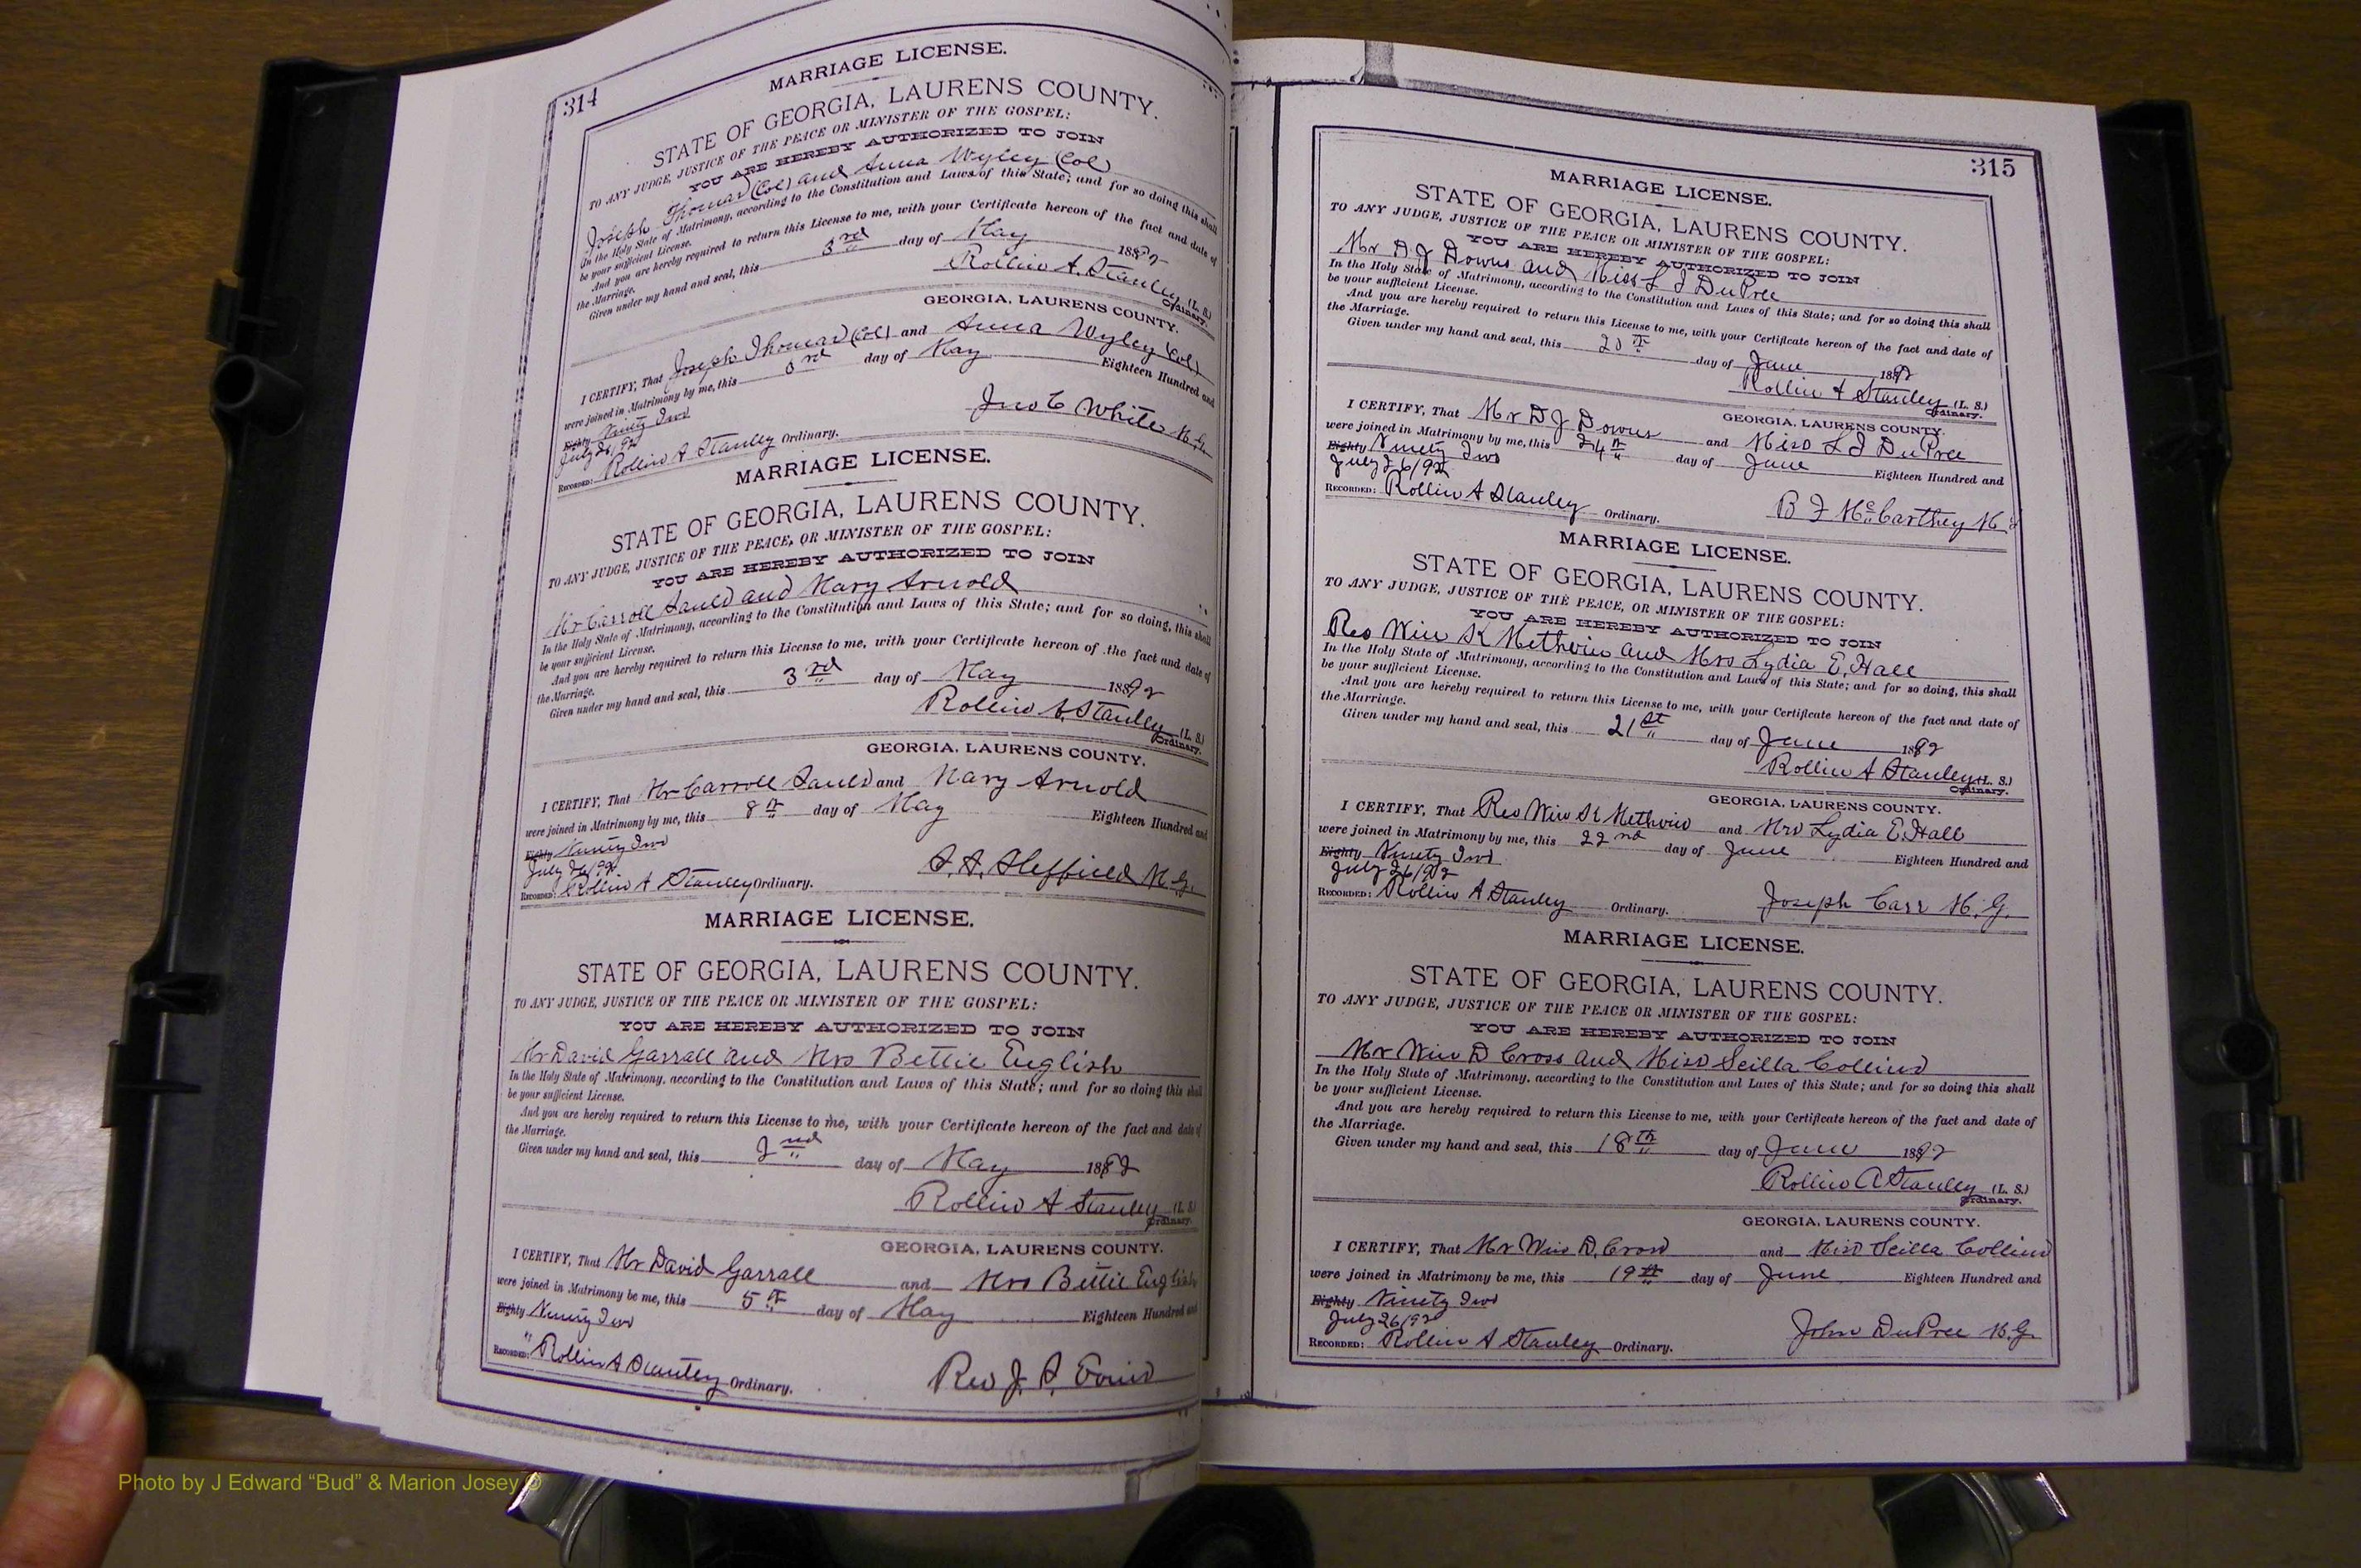 314
MARRIAGE LICENSE.
STATE OF GEORGIA, LAURENS COUNTY.
TO ANY JUDGE, JUSTICE OF THE PEACE OR MINISTER OF THE GOSPEL:
YOU ARE HEREBY AUTHORIZED TO JOIN
Joseph Thomas (Col) and Anna Wyley (Col)
In the Holy State of Matrimony, according to the Constitution and Laws of this State; and for so doing this shall
be your sufficient License.
And you are hereby required to return this License to me, with your Certificate hereon of the fact and date of
the Marriage.
Given under my hand and seal, this 3rd day of May 1892
Rollin A. Stanley (L. S.)
Ordinary.
GEORGIA, LAURENS COUNTY.
I CERTIFY, That Joseph Thomas (Col) and Anna Wyley (Col)
were joined in Matrimony by me, this 3rd day of May Eighteen Hundred and
Eighty Ninety Two
July 26/92
RECORDED: Rollin A Stanley Ordinary.
Jno C White M.G.
MARRIAGE LICENSE.
STATE OF GEORGIA, LAURENS COUNTY.
TO ANY JUDGE, JUSTICE OF THE PEACE, OR MINISTER OF THE GOSPEL:
YOU ARE HEREBY AUTHORIZED TO JOIN
Mr Carroll and Mary Arnold
In the Holy State of Matrimony, according to the Constitution and Laws of this State; and for so doing, this shall
be your sufficient License.
And you are hereby required to return this License to me, with your Certificate hereon of the fact and date of
the Marriage.
Given under my hand and seal, this 3rd day of May 1892
Rollin A. Stanley (L. S.)
Ordinary.
GEORGIA, LAURENS COUNTY.
I CERTIFY, That Mr Carroll and Mary Arnold
were joined in Matrimony by me, this 8th day of May Eighteen Hundred and
Eighty Ninety Two
July 26/92
RECORDED: Rollin A Stanley Ordinary.
Sheffield M.G.
MARRIAGE LICENSE.
STATE OF GEORGIA, LAURENS COUNTY.
TO ANY JUDGE, JUSTICE OF THE PEACE OR MINISTER OF THE GOSPEL:
YOU ARE HEREBY AUTHORIZED TO JOIN
Mr David Garrall and Mrs Bettie English
In the Holy State of Matrimony, according to the Constitution and Laws of this State; and for so doing this shall
be your sufficient License.
And you are hereby required to return this License to me, with your Certificate hereon of the fact and date of
the Marriage.
Given under my hand and seal, this 2nd day of May 1892
Rollin A Stanley (L. S.)
Ordinary.
GEORGIA, LAURENS COUNTY.
I CERTIFY, That Mr David Garrall and Mrs Bettie English
were joined in Matrimony be me, this 5th day of May Eighteen Hundred and
Eighty Ninety Two
RECORDED: " Rollin A Stanley Ordinary.
Rev J.
315
MARRIAGE LICENSE.
STATE OF GEORGIA, LAURENS COUNTY.
TO ANY JUDGE, JUSTICE OF THE PEACE OR MINISTER OF THE GOSPEL:
YOU ARE HEREBY AUTHORIZED TO JOIN
Mr D J Downs and Miss L J DuPree
In the Holy State of Matrimony, according to the Constitution and Laws of this State; and for so doing this shall
be your sufficient License.
And you are hereby required to return this License to me, with your Certificate hereon of the fact and date of
the Marriage.
Given under my hand and seal, this 20th day of June 1892
Rollin A Stanley (L. S.)
Ordinary.
GEORGIA, LAURENS COUNTY.
I CERTIFY, That Mr D J Downs and Miss L J DuPree
were joined in Matrimony by me, this 24th day of June Eighteen Hundred and
Eighty Ninety Two
July 26/92
RECORDED: Rollin A Stanley Ordinary.
B F McCarthey M.G
MARRIAGE LICENSE.
STATE OF GEORGIA, LAURENS COUNTY.
TO ANY JUDGE, JUSTICE OF THE PEACE, OR MINISTER OF THE GOSPEL:
YOU ARE HEREBY AUTHORIZED TO JOIN
Rev Wm K Methvin and Mrs Lydia E. Hall
In the Holy State of Matrimony, according to the Constitution and Laws of this State; and for so doing, this shall
be your sufficient License.
And you are hereby required to return this License to me, with your Certificate hereon of the fact and date of
the Marriage.
Given under my hand and seal, this 21st day of June 1892
Rollin A Stanley (L. S.)
Ordinary.
GEORGIA, LAURENS COUNTY.
I CERTIFY, That Rev Wm K Methvin and Mrs Lydia E. Hall
were joined in Matrimony by me, this 22nd day of June Eighteen Hundred and
Eighty Ninety Two
July 26/92
RECORDED: Rollin A Stanley Ordinary.
Joseph Carr M. G.
MARRIAGE LICENSE.
STATE OF GEORGIA, LAURENS COUNTY.
TO ANY JUDGE, JUSTICE OF THE PEACE OR MINISTER OF THE GOSPEL:
YOU ARE HEREBY AUTHORIZED TO JOIN
Mr Wm D Cross and Miss Scilla Collins
In the Holy State of Matrimony, according to the Constitution and Laws of this State; and for so doing this shall
be your sufficient License.
And you are hereby required to return this License to me, with your Certificate hereon of the fact and date of
the Marriage.
Given under my hand and seal, this 18th day of June 1892
Rollin A Stanley (L. S.)
Ordinary.
GEORGIA, LAURENS COUNTY.
I CERTIFY, That Mr Wm D. Cross and Miss Scilla Collins
were joined in Matrimony be me, this 19th day of June Eighteen Hundred and
Eighty Ninety Two
July 26/92
RECORDED: Rollin A Stanley Ordinary.
John DuPree M.G.
Photo by J Edward “Bud” & Marion Josey ©